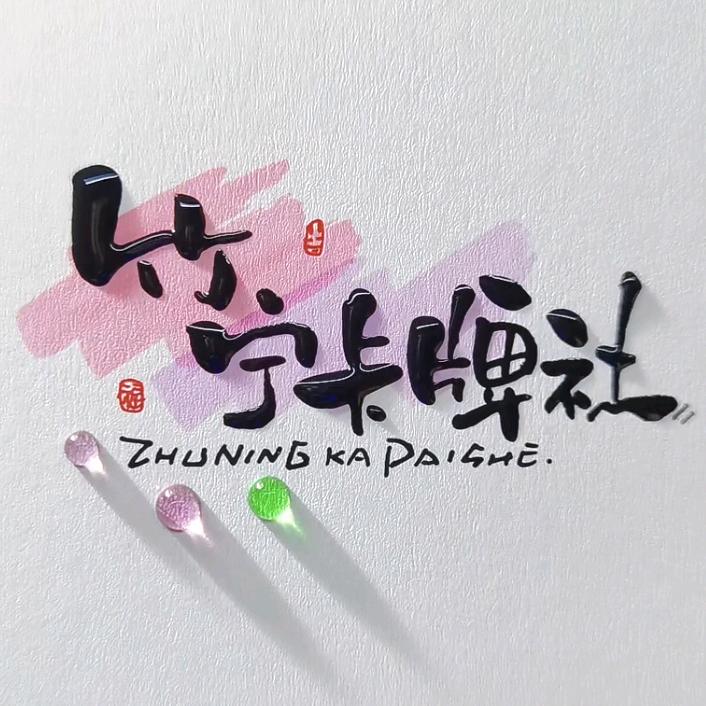 竹宁卡牌社
ZHUNING KA PAISHE.